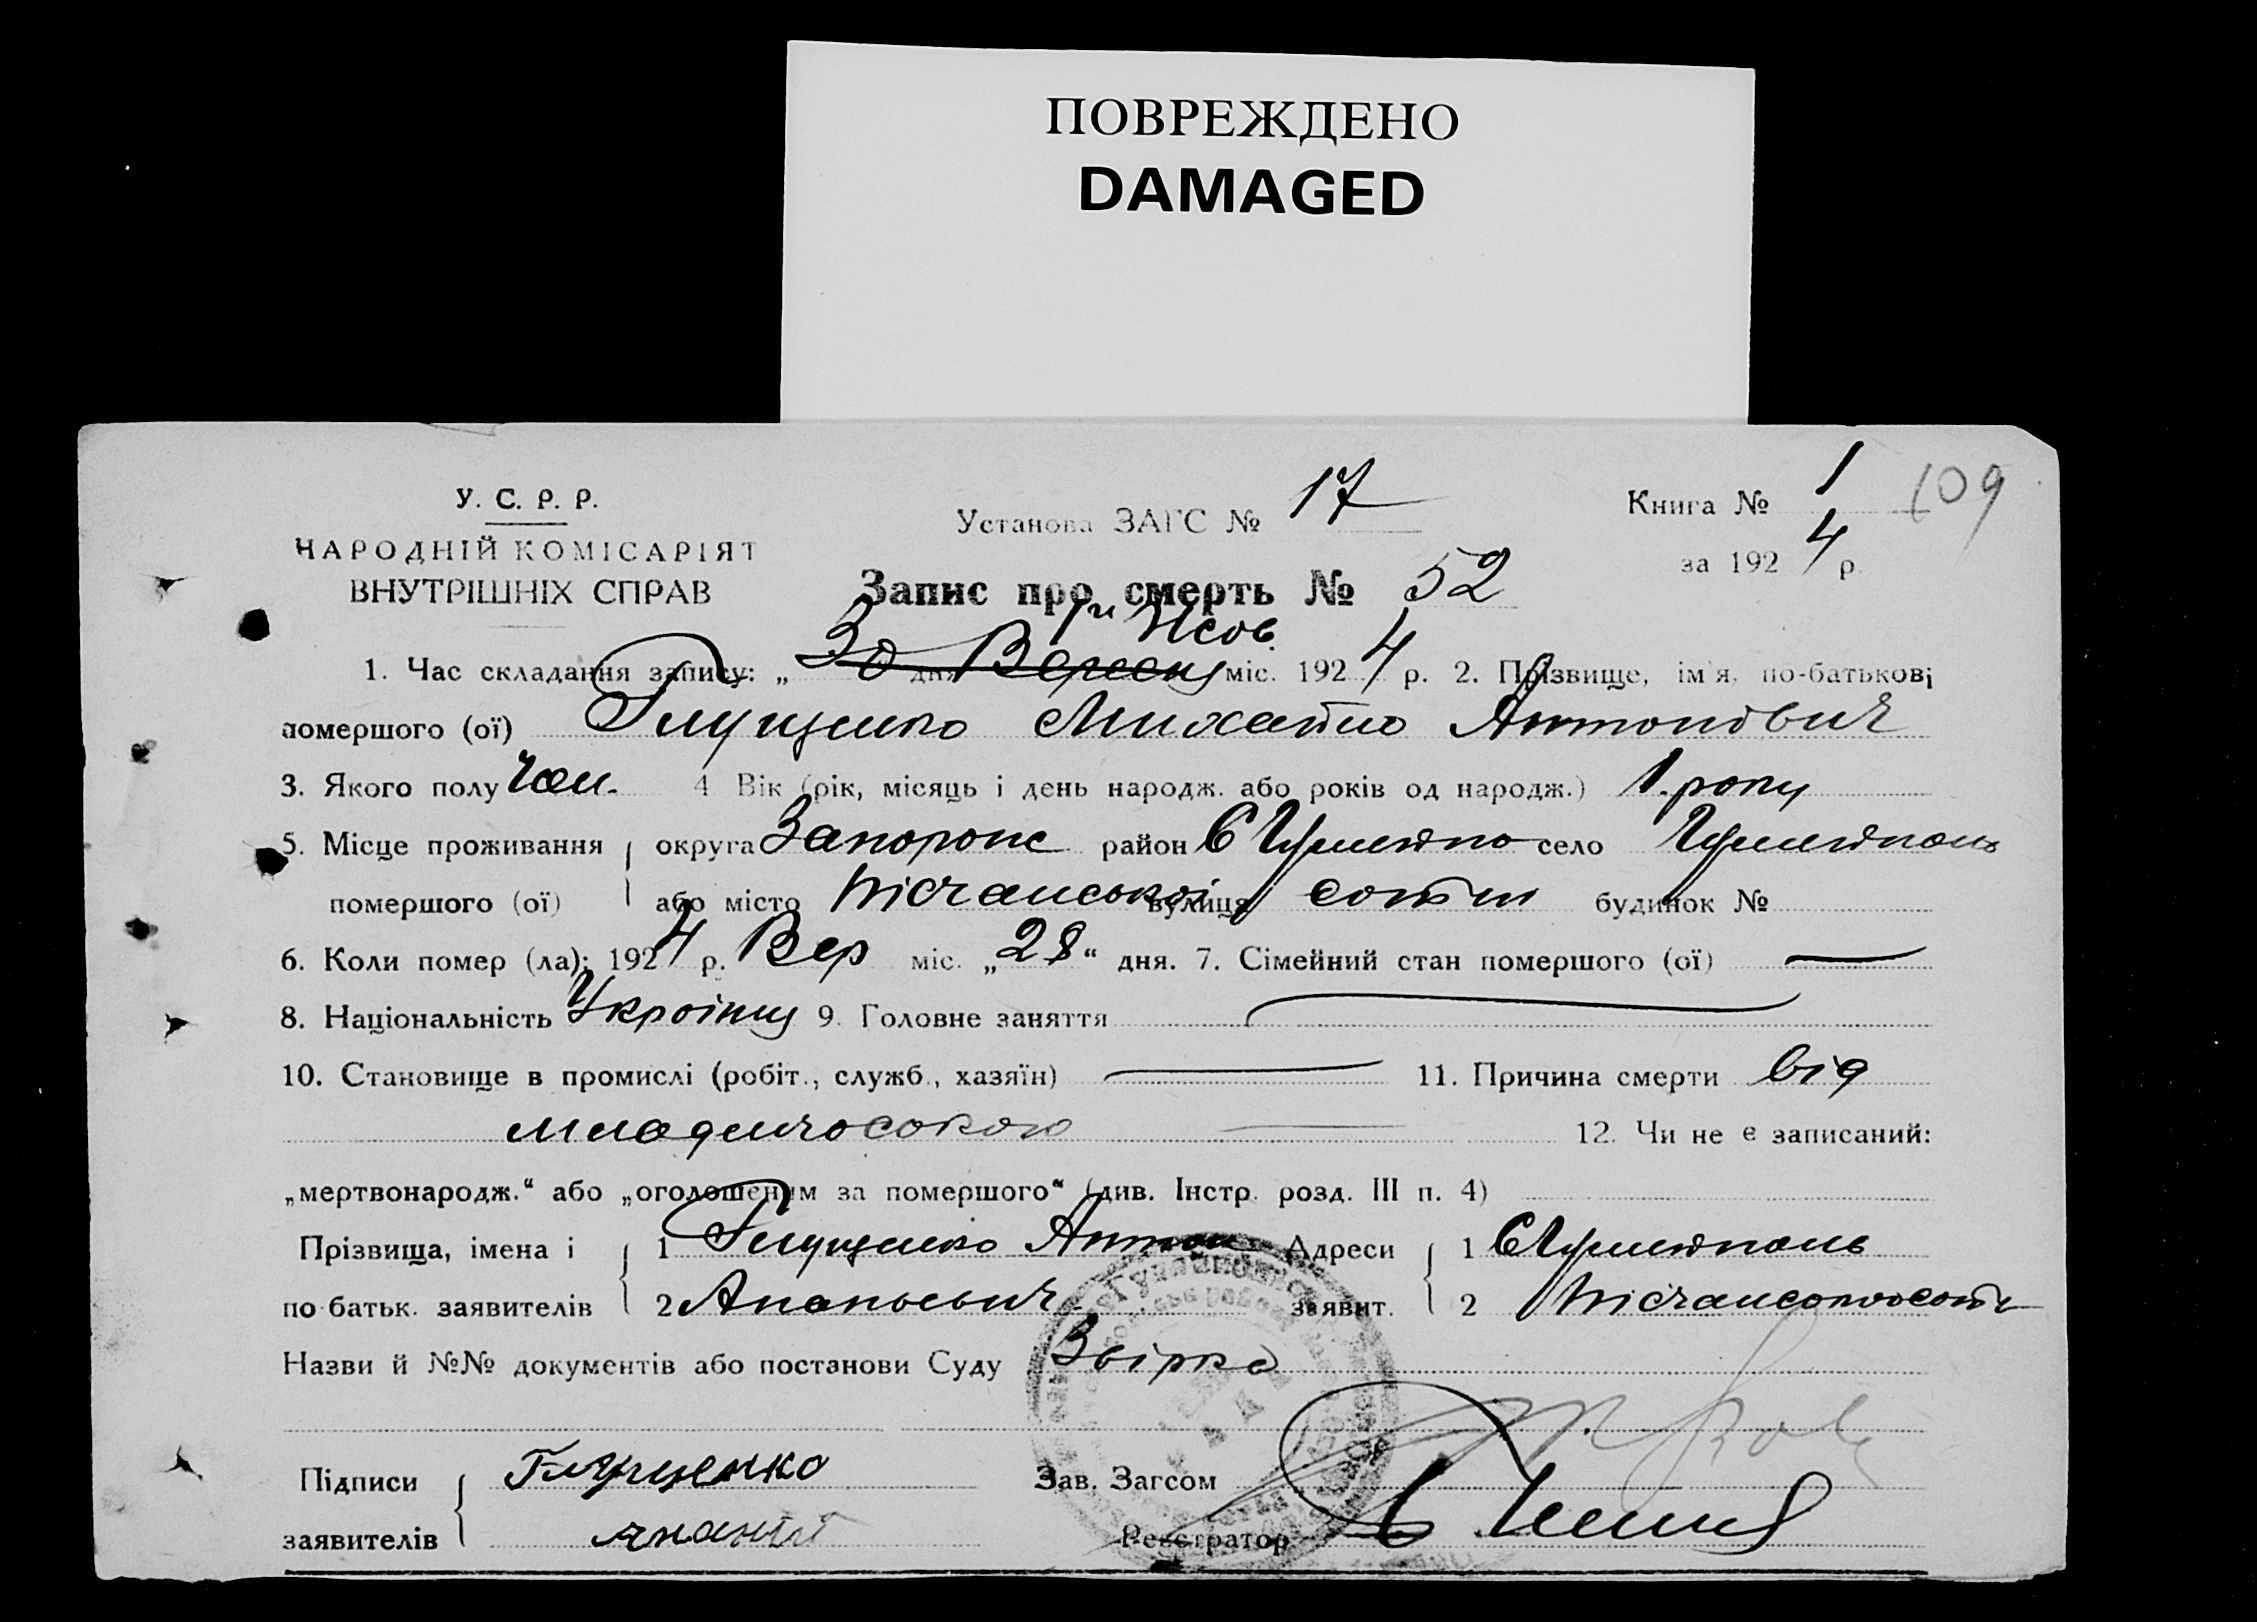 ПОВРЕЖДЕНО
DAMAGED
У. С. Р. Р.
НАРОДНІЙ КОМІСАРІЯТ
ВНУТРІШНІХ СПРАВ
Установа ЗАГС № 17
Книга № 1 109
за 1924 р.
Запис про смерть № 52
1. Час складання запису: „ 30 дня Вересня міс. 1924 р. 2. Прізвище, ім'я, по-батькові
помершого (ої) Глущенко Михайло Антонович
3. Якого полу Чол. 4 Вік (рік, місяць і день народж. або років од народж.) 1. року
5. Місце проживання округа Запорож район Гуляйпо село Гуляйполь
помершого (ої) або місто Пісчанської вулиця сотні будинок №
6. Коли помер (ла): 1924 р. Вер міс. „28“ дня. 7. Сімейний стан помершого (ої) —
8. Національність 9. Головне заняття
10. Становище в промислі (робіт., служб., хазяїн) — 11. Причина смерти від
12. Чи не є записаний:
„мертвонародж.“ або „оголошеним за помершого“ (див. Інстр. розд. III п. 4)
Прізвища, імена і 1 Глущенко Антон Адреси 1 Гуляйполь
по-батьк. заявителів 2 заявит. 2
Назви й №№ документів або постанови Суду
Підписи Глущенко Зав. Загсом
заявителів Реєстратор